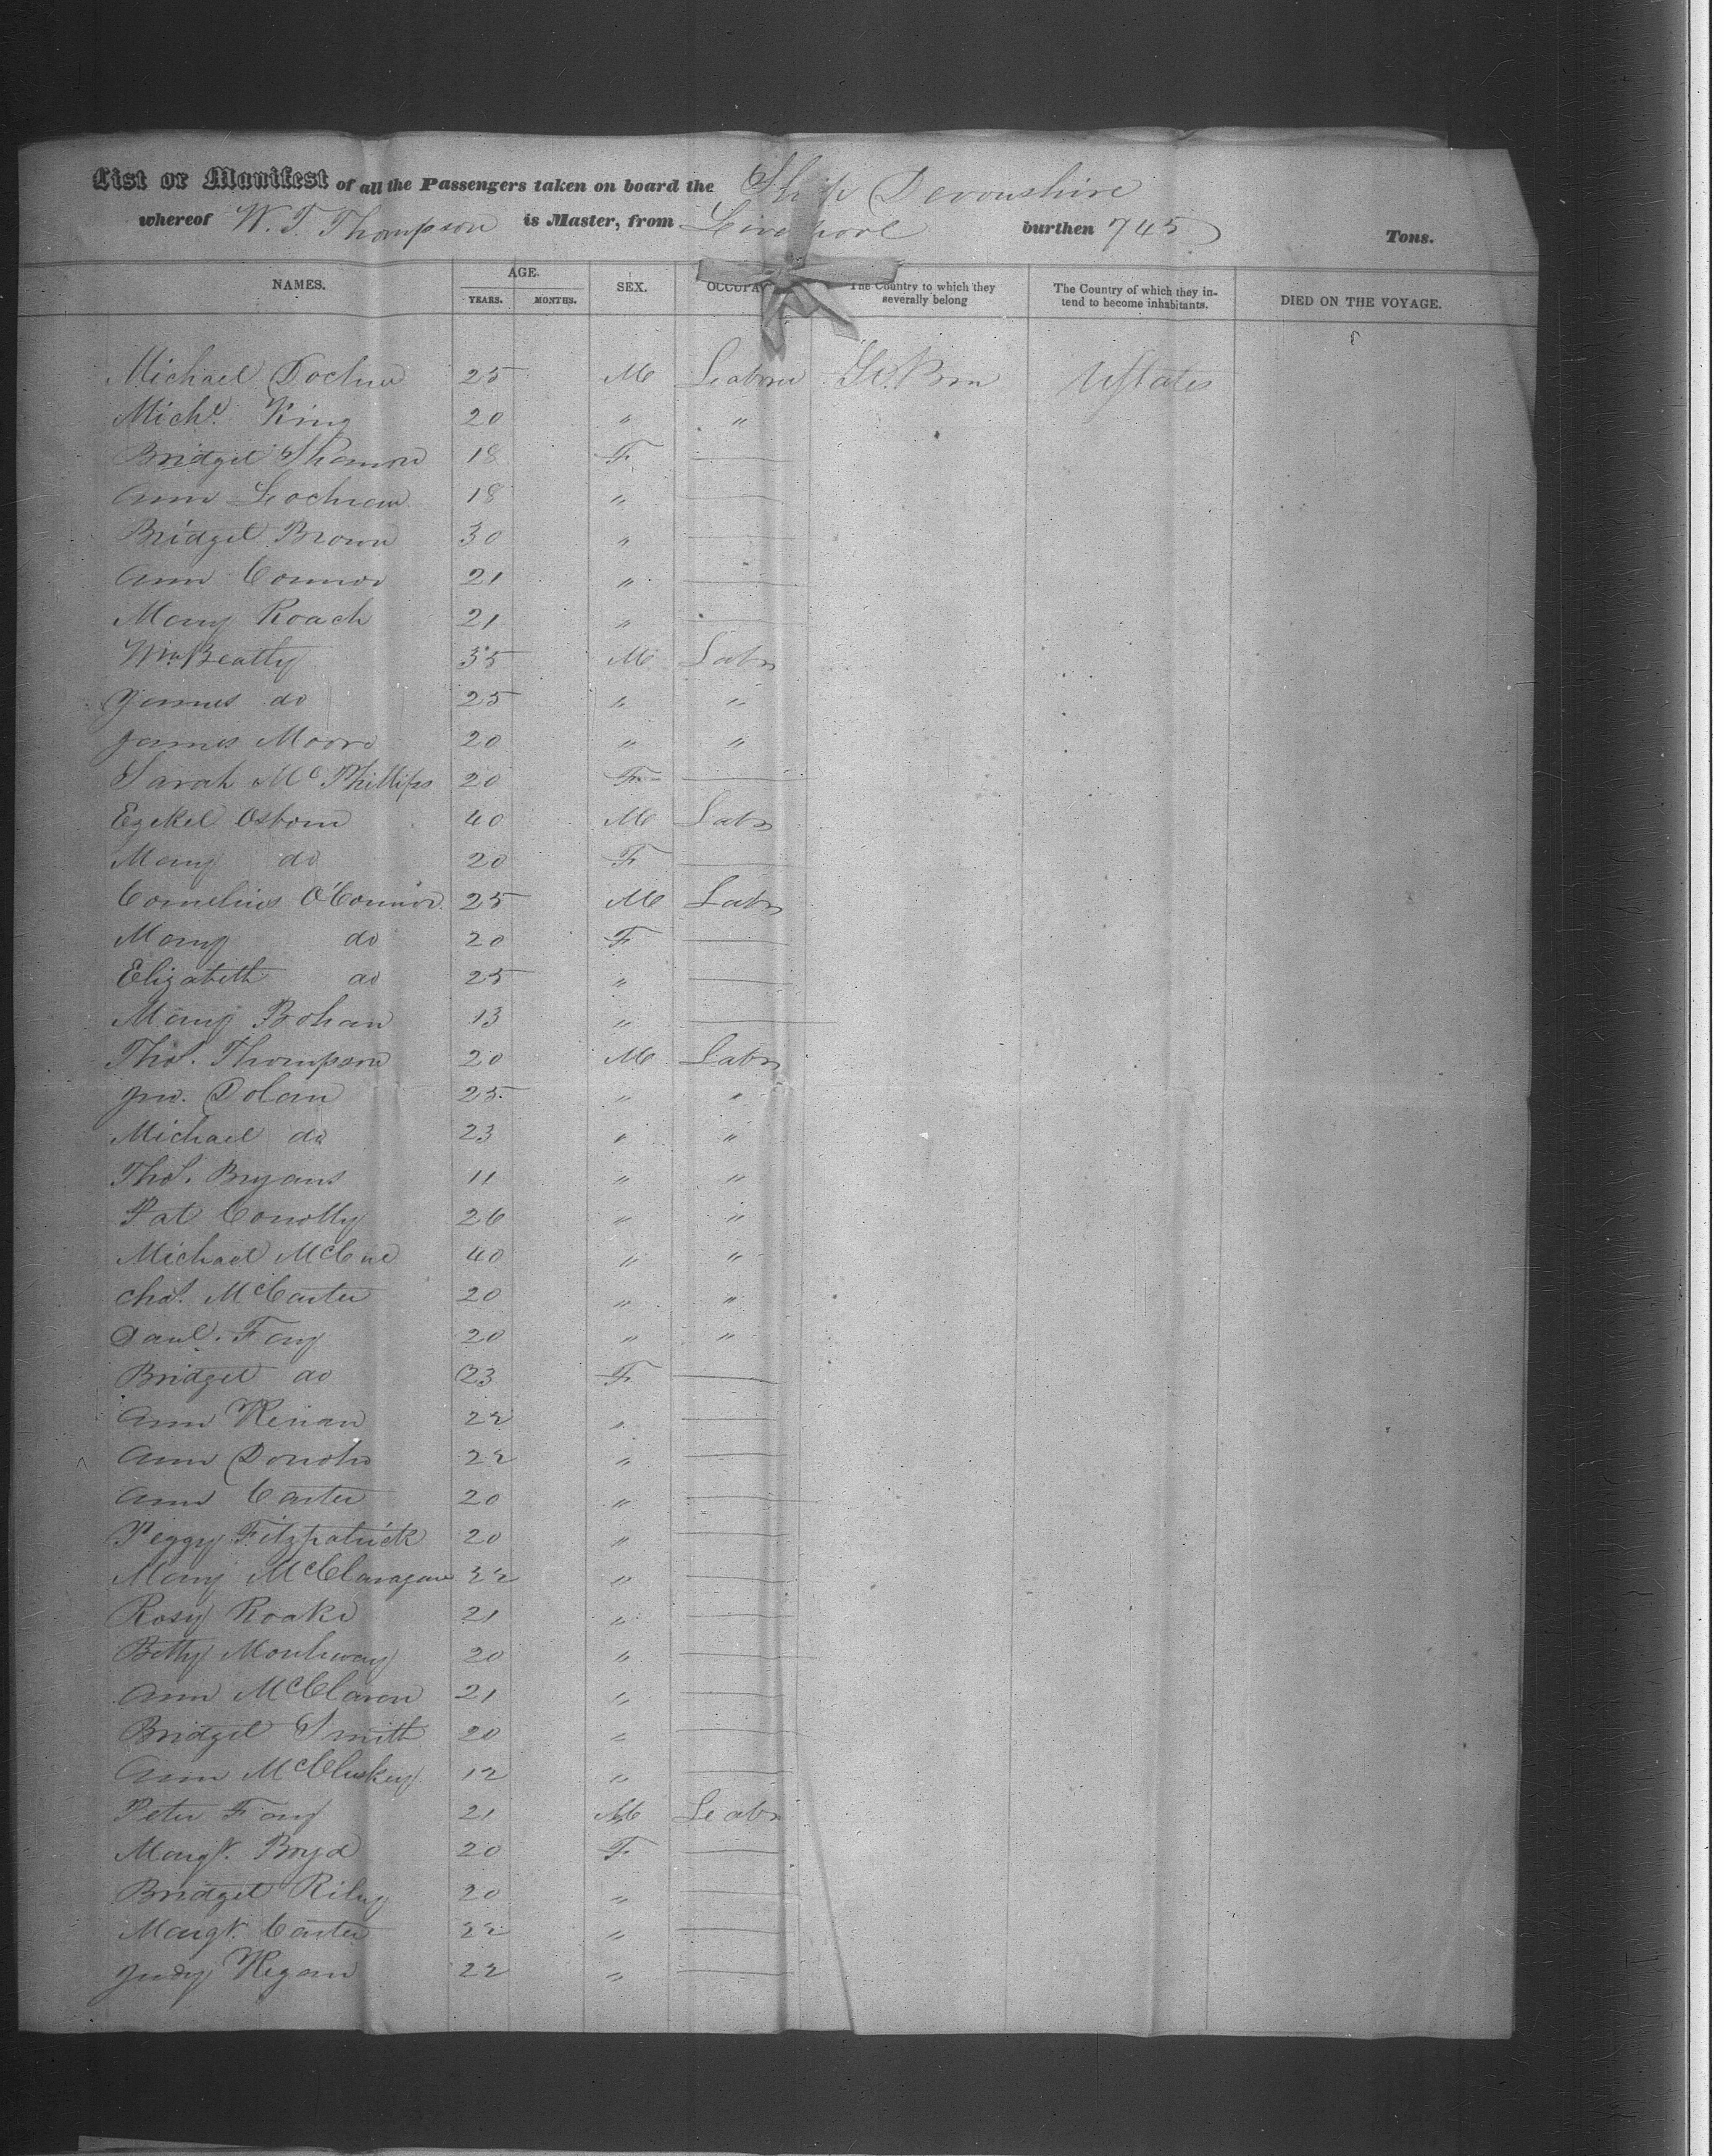 List or Manifest of all the Passengers taken on board the Ship Devonshire
whereof W. T. Thompson is Master, from Liverpool burthen 745 Tons.
NAMES. AGE. YEARS. MONTHS. SEX. OCCUPA The Country to which they severally belong The Country of which they intend to become inhabitants. DIED ON THE VOYAGE.
Michael 25 M Labour Gt. Brn UStates
Michl. King 20 " "
Bridget Shannon 18 F —
Ann 18 " —
Bridget Brown 30 " —
Ann Connor 21 " —
Mary Roach 21 " —
Wm. Beatty 35 M Labr
James do 25 " "
James Moore 20 " "
Sarah McPhillips 20 F —
Ezekel Osborn 40 M Labr
Mary do 20 F —
Cornelius O'Connor 25 M Labr
Mary do 20 F —
Elizabeth do 25 " —
Mary Bohan 13 " —
Thos. Thompson 20 M Labr
Jno. Dolan 25 " "
Michael do 23 " "
Thos. Bryans 11 " "
Pat Conolly 26 " "
Michael McCue 40 " "
Chas. McCarter 20 " "
Danl. Fay 20 " "
Bridget do 23 F —
Ann Kenan 22 " —
Ann Donoho 22 " —
Ann Carter 20 " —
Peggy Fitzpatrick 20 " —
Mary 22 " —
Rosy Roake 21 " —
Betty 20 " —
Ann McClaren 21 " —
Bridget Smith 20 " —
Ann McCluskey 12 " —
Peter Fay 21 M Labr
Margt. Boyd 20 F —
Bridget Riley 20 " —
Margt. Carter 22 " —
Judy Kegan 22 " —